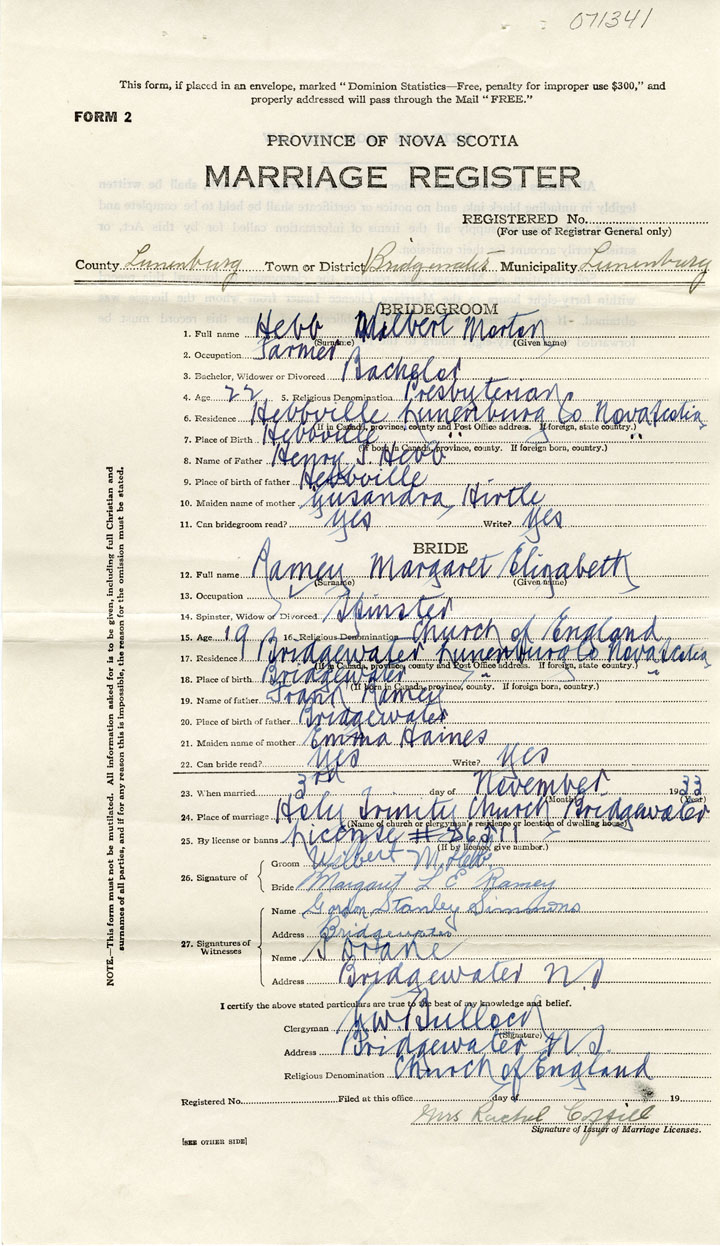 071341
This form, if placed in an envelope, marked "Dominion Statistics—Free, penalty for improper use $300," and
properly addressed will pass through the Mail "FREE."
FORM 2
PROVINCE OF NOVA SCOTIA
MARRIAGE REGISTER
REGISTERED No.
(For use of Registrar General only)
County Lunenburg Town or District Bridgewater Municipality Lunenburg
BRIDEGROOM
1. Full name Hebb Wilbert Morton
(Surname) (Given name)
2. Occupation Farmer
3. Bachelor, Widower or Divorced Bachelor
4. Age 22 5. Religious Denomination Presbyterian
6. Residence Hebbville Lunenburg Co Nova Scotia
(If in Canada, province, county and Post Office address. If foreign, state country.)
7. Place of Birth Hebbville " "
(If born in Canada, province, county. If foreign born, country.)
8. Name of Father Henry S. Hebb
9. Place of birth of father Hebbville
10. Maiden name of mother Hirtle
11. Can bridegroom read? yes Write? yes
BRIDE
12. Full name Ramey Margaret Elizabeth
(Surname) (Given name)
13. Occupation
14. Spinster, Widow or Divorced Spinster
15. Age 19 16. Religious Denomination Church of England
17. Residence Bridgewater Lunenburg Co Nova Scotia
(If in Canada, province, county and Post Office address. If foreign, state country.)
18. Place of birth Bridgewater " "
(If born in Canada, province, county. If foreign born, country.)
19. Name of father Frank Ramey
20. Place of birth of father Bridgewater
21. Maiden name of mother Emma Haines
22. Can bride read? Yes Write? Yes
23. When married 3rd day of November 1933
(Month) (Year)
24. Place of marriage Holy Trinity Church Bridgewater
(Name of church or clergyman's residence or location of dwelling house)
25. By license or banns Licence #
(If by licence, give number.)
26. Signature of
Groom Wilbert M. Hebb
Bride Margaret L E Ramey
27. Signatures of Witnesses
Name Gordon Stanley Simmons
Address Bridgewater
Name Doane
Address Bridgewater N.S
I certify the above stated particulars are true to the best of my knowledge and belief.
Clergyman W. Bullock
(Signature)
Address Bridgewater N.S.
Religious Denomination Church of England
Registered No. Filed at this office day of 19
Mrs Rachel
Signature of Issuer of Marriage Licenses.
[SEE OTHER SIDE]
NOTE.—This form must not be mutilated. All information asked for is to be given, including full Christian and
surnames of all parties, and if for any reason this is impossible, the reason for the omission must be stated.